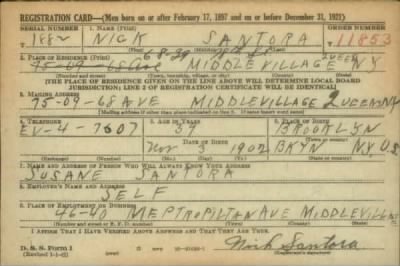 REGISTRATION CARD—(Men born on or after February 17, 1897 and on or before December 31, 1921)
SERIAL NUMBER 1. NAME (Print) ORDER NUMBER
1882 NICK SANTORA 11853
(First) (Middle) (Last)
68-39
2. PLACE OF RESIDENCE (Print)
75-09 MIDDLEVILLAGE QUEENS NY
(Number and street) (Town, township, village, or city) (County) (State)
[THE PLACE OF RESIDENCE GIVEN ON THE LINE ABOVE WILL DETERMINE LOCAL BOARD
JURISDICTION; LINE 2 OF REGISTRATION CERTIFICATE WILL BE IDENTICAL]
3. MAILING ADDRESS
75-09-68 AVE MIDDLEVILLAGE QUEENS NY
[Mailing address if other than place indicated on line 2. If same insert word same]
4. TELEPHONE 5. AGE IN YEARS 6. PLACE OF BIRTH
EV-4-7607 39 BROOKLYN
DATE OF BIRTH (Town or county)
Nov 3 1902 BKYN N.Y. U.S
(Exchange) (Number) (Mo.) (Day) (Yr.) (State or country)
7. NAME AND ADDRESS OF PERSON WHO WILL ALWAYS KNOW YOUR ADDRESS
SUSANE SANTORA
8. EMPLOYER'S NAME AND ADDRESS
SELF
9. PLACE OF EMPLOYMENT OR BUSINESS
MIDDLEVILL
(Number and street or R. F. D. number) (Town) (County) (State)
I AFFIRM THAT I HAVE VERIFIED ABOVE ANSWERS AND THAT THEY ARE TRUE.
D. S. S. Form 1
Nick Santora
(Registrant's signature)